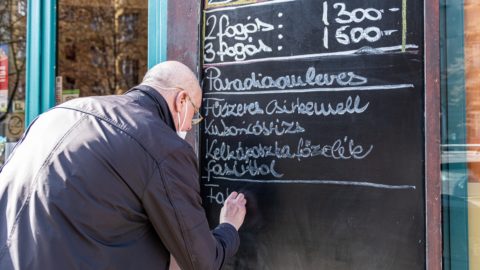 2 fogás : 1300.-
3 fogás : 1500.-
Paradicsomleves
Fűszeres csirkemell
Kukoricás rizs
Kelkáposzta főzelék
fasírttal